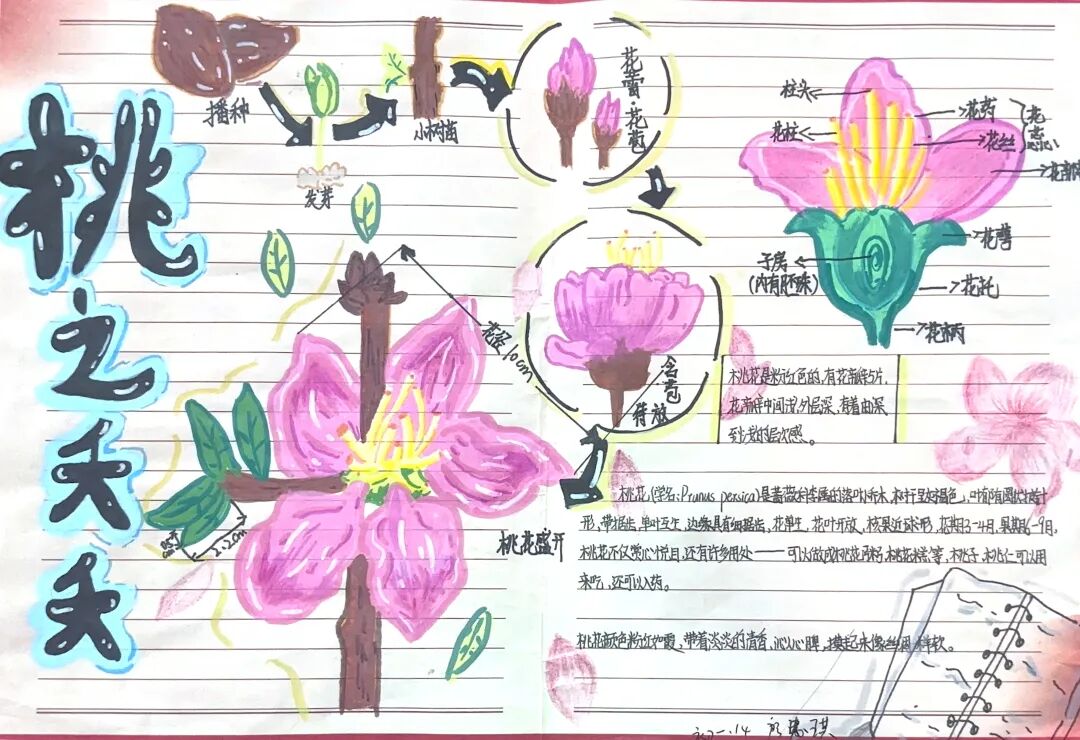 桃之夭夭
播种
发芽
小树苗
花蕾·花苞
含苞
待放
桃花盛开
花径10cm
2.2cm
柱头
花柱
花药
花丝
花萼
子房
(内有胚珠)
花托
花柄
桃花是粉红色的,有花瓣5片,
花瓣中间浅,外层深,有着由深
到浅的层次感。
桃花(学名:Prunus persica)是蔷薇科李属的落叶乔木,树干呈灰褐色,叶
形,带锯齿,单叶互生,边缘具有细锯齿,花单生,花叶开放,核果近球形,花期3-4月,果期6-9月。
桃花不仅赏心悦目,还有许多用处——可以做成桃花酥,桃花糕等,桃子,桃仁可以用
来吃,还可以入药。
桃花颜色粉红如霞,带着淡淡的清香,沁人心脾,摸起来像丝绸一样软。